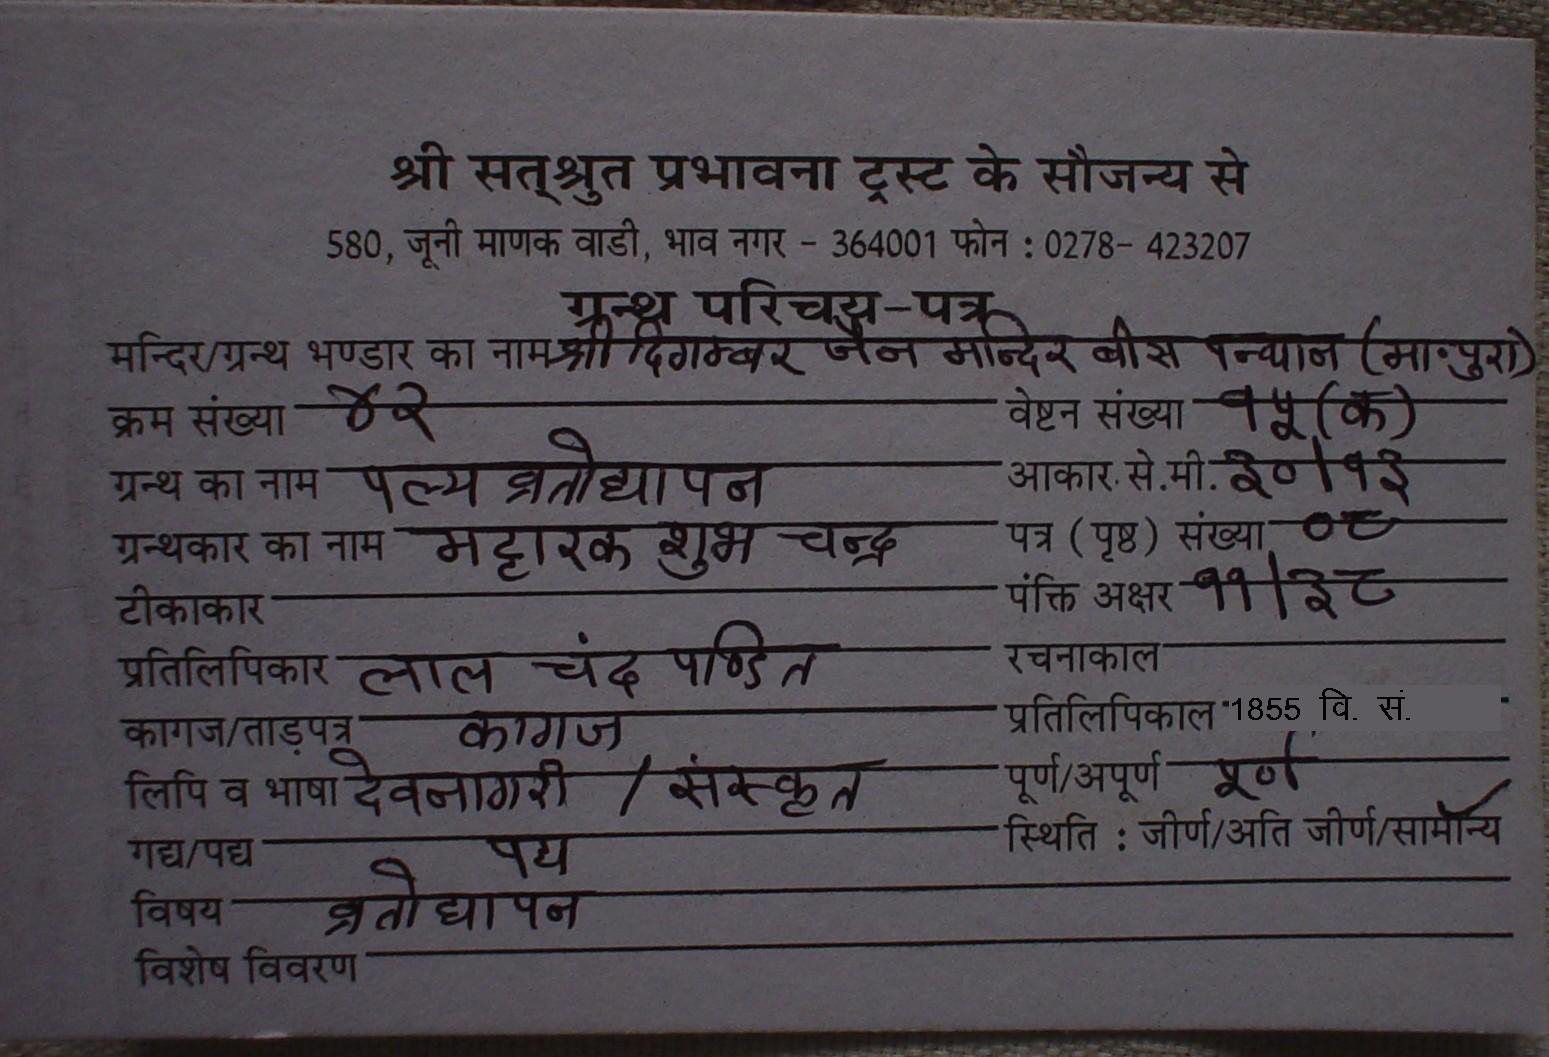 श्री सत्श्रुत प्रभावना ट्रस्ट के सौजन्य से
580, जूनी माणक वाडी, भाव नगर - 364001 फोन : 0278- 423207
ग्रन्थ परिचय-पत्र
मन्दिर/ग्रन्थ भण्डार का नाम श्री दिगम्बर जैन मन्दिर बीस पन्थान (मा.पुरा)
क्रम संख्या ४२ वेष्टन संख्या १५ (क)
ग्रन्थ का नाम पल्य व्रतोद्यापन आकार. से.मी. ३०/१३
ग्रन्थकार का नाम भट्टारक शुभ चन्द्र पत्र (पृष्ठ) संख्या ०८
टीकाकार पंक्ति अक्षर ११/३८
प्रतिलिपिकार लाल चंद पण्डित रचनाकाल
कागज/ताड़पत्र कागज प्रतिलिपिकाल 1855 वि. सं.
लिपि व भाषा देवनागरी / संस्कृत पूर्ण/अपूर्ण पूर्ण
गद्य/पद्य पद्य स्थिति : जीर्ण/अति जीर्ण/सामान्य
विषय व्रतोद्यापन
विशेष विवरण